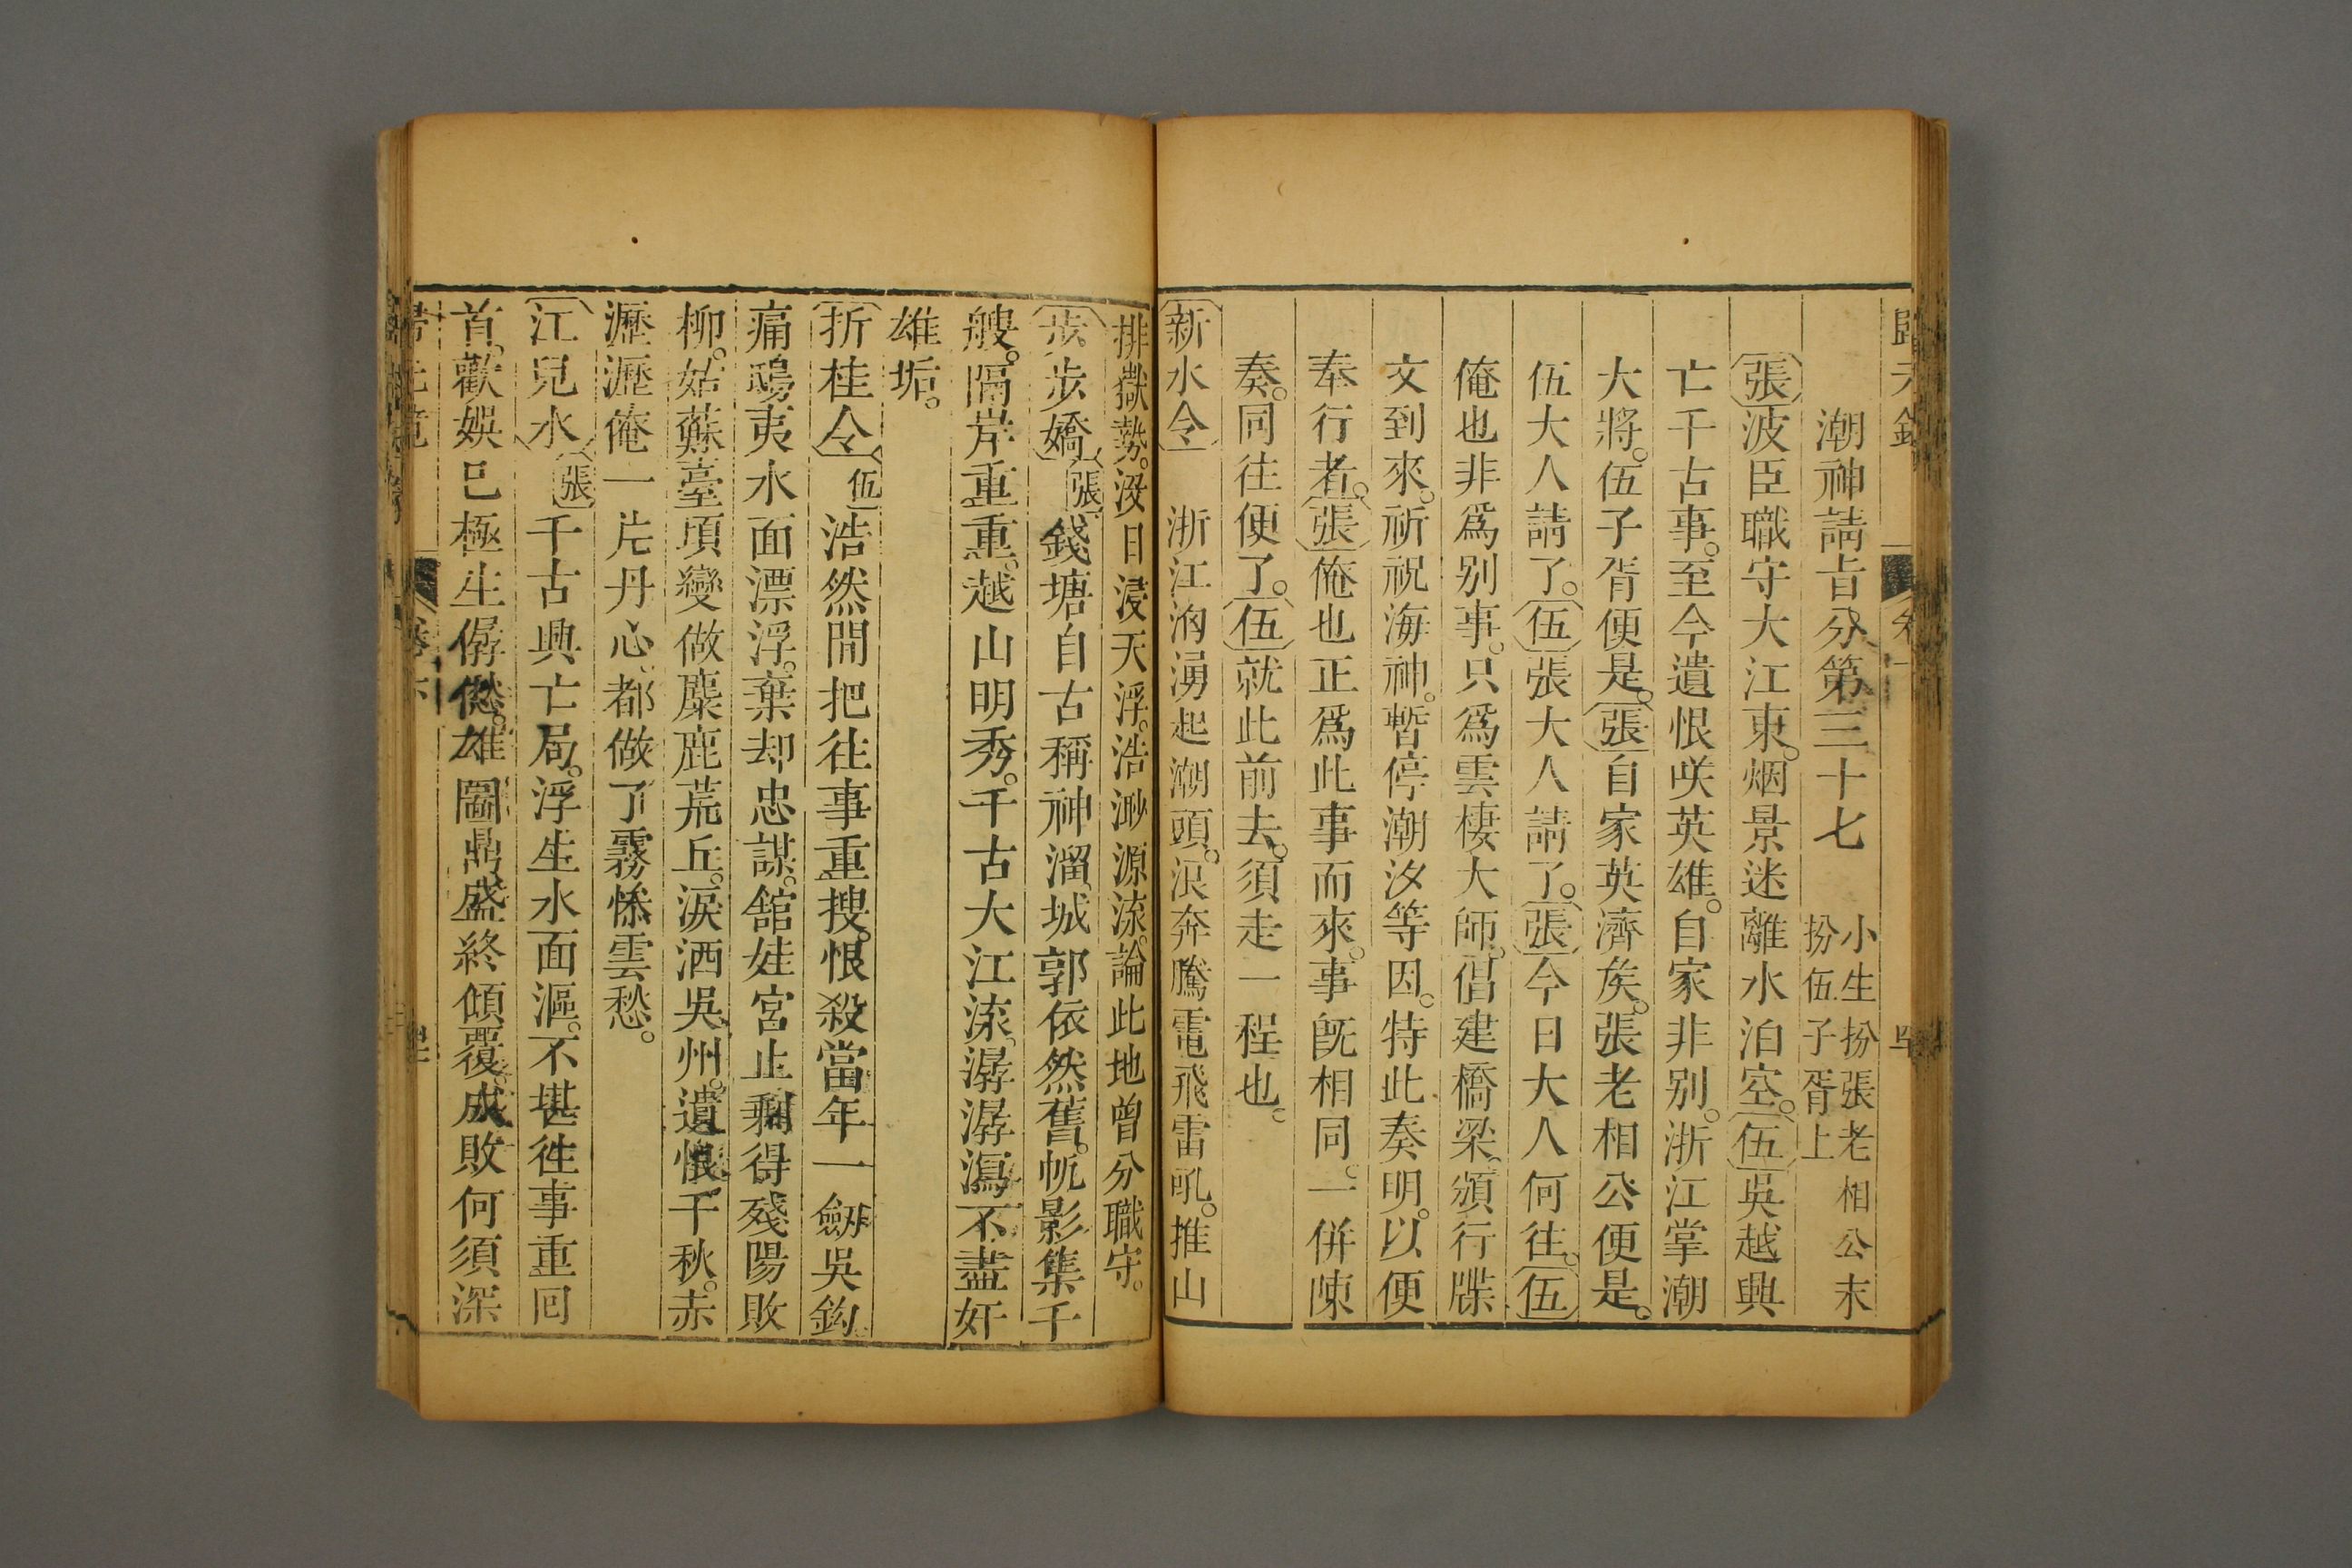 潮神請旨分第三十七
小生扮張老相公末
扮伍子胥上
張波臣職守大江東。烟景迷離水泊空。伍吳越興
亡千古事。至今遺恨咲英雄。自家非别。浙江掌潮
大將。伍子胥便是。張自家英濟矦。張老相公便是。
伍大人請了。伍張大人請了。張今日大人何往。伍
俺也非爲别事。只爲雲棲大師。倡建橋梁。頒行牒
文到來。祈祝海神。暫停潮汐等因。特此奏明。以便
奉行者。張俺也正爲此事而來。事旣相同。一併陳
奏。同往便了。伍就此前去。須走一程也。
新水令 浙江洶湧起潮頭。浪奔騰電飛雷吼。推山
排嶽勢。沒日浸天浮。浩渺源流。論此地曾分職守。
步步嬌張錢塘自古稱神溜。城郭依然舊。帆影集千
艘。隔岸重重。越山明秀。千古大江流。潺潺瀉不盡奸
雄垢。
折桂令伍浩然間把往事重搜。恨殺當年一劒吳鈎。
痛鴟夷水面漂浮。棄却忠謀。館娃宮止剩得殘陽敗
柳。姑蘇臺項變做麋鹿荒丘。淚洒吳州。遺恨千秋。赤
瀝瀝俺一片丹心。都做了霧慘雲愁。
江兒水張千古興亡局。浮生水面漚。不堪徃事重囘
首。歡娛已極生僝僽。雄圖鼎盛終傾覆。成敗何須深